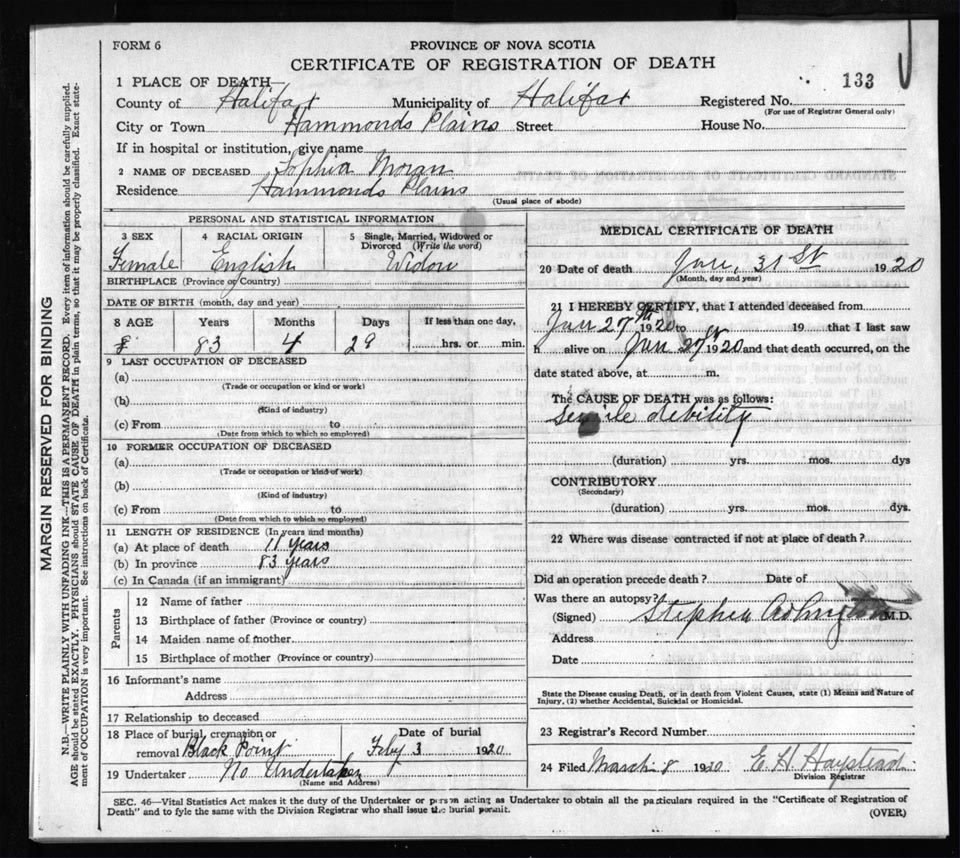 FORM 6
PROVINCE OF NOVA SCOTIA
CERTIFICATE OF REGISTRATION OF DEATH
133
1 PLACE OF DEATH—
County of Halifax Municipality of Halifax Registered No.
(For use of Registrar General only)
City or Town Hammonds Plains Street House No.
If in hospital or institution, give name
2 NAME OF DECEASED Sophia Moran
Residence Hammonds Plains
(Usual place of abode)
PERSONAL AND STATISTICAL INFORMATION
3 SEX 4 RACIAL ORIGIN 5 Single, Married, Widowed or Divorced (Write the word)
Female English Widow
BIRTHPLACE (Province or Country)
DATE OF BIRTH (month, day and year)
8 AGE Years Months Days If less than one day,
83 4 28 hrs. or min.
9 LAST OCCUPATION OF DECEASED
(a)
(Trade or occupation or kind or work)
(b)
(Kind of industry)
(c) From to
(Date from which to which so employed)
10 FORMER OCCUPATION OF DECEASED
(a)
(Trade or occupation or kind of work)
(b)
(Kind of industry)
(c) From to
(Date from which to which so employed)
11 LENGTH OF RESIDENCE (In years and months)
(a) At place of death 11 years
(b) In province 83 years
(c) In Canada (if an immigrant)
Parents
12 Name of father
13 Birthplace of father (Province or country)
14 Maiden name of mother
15 Birthplace of mother (Province or country)
16 Informant's name
Address
17 Relationship to deceased
18 Place of burial, cremation or Date of burial
removal Black Point Feby 3 1920
19 Undertaker No Undertaker
(Name and Address)
MEDICAL CERTIFICATE OF DEATH
20 Date of death Jan, 31st 1920
(Month, day and year)
21 I HEREBY CERTIFY, that I attended deceased from
Jan 27th 1920 to 19 that I last saw
h alive on Jan 27th 1920 and that death occurred, on the
date stated above, at m.
The CAUSE OF DEATH was as follows:
Senile debility
(duration) yrs. mos. dys
CONTRIBUTORY
(Secondary)
(duration) yrs. mos. dys.
22 Where was disease contracted if not at place of death?
Did an operation precede death? Date of
Was there an autopsy?
(Signed) Stephen M.D.
Address
Date
State the Disease causing Death, or in death from Violent Causes, state (1) Means and Nature of
Injury, (2) whether Accidental, Suicidal or Homicidal.
23 Registrar's Record Number
24 Filed March 8 1920 E. H. Haystead
Division Registrar
SEC. 46—Vital Statistics Act makes it the duty of the Undertaker or person acting as Undertaker to obtain all the particulars required in the "Certificate of Registration of
Death" and to fyle the same with the Division Registrar who shall issue the burial permit.
(OVER)
MARGIN RESERVED FOR BINDING
N.B.—WRITE PLAINLY WITH UNFADING INK—THIS IS A PERMANENT RECORD. Every item of information should be carefully supplied.
AGE should be stated EXACTLY. PHYSICIANS should STATE CAUSE OF DEATH in plain terms, so that it may be properly classified. Exact state-
ment of OCCUPATION is very important. See instructions on back of Certificate.